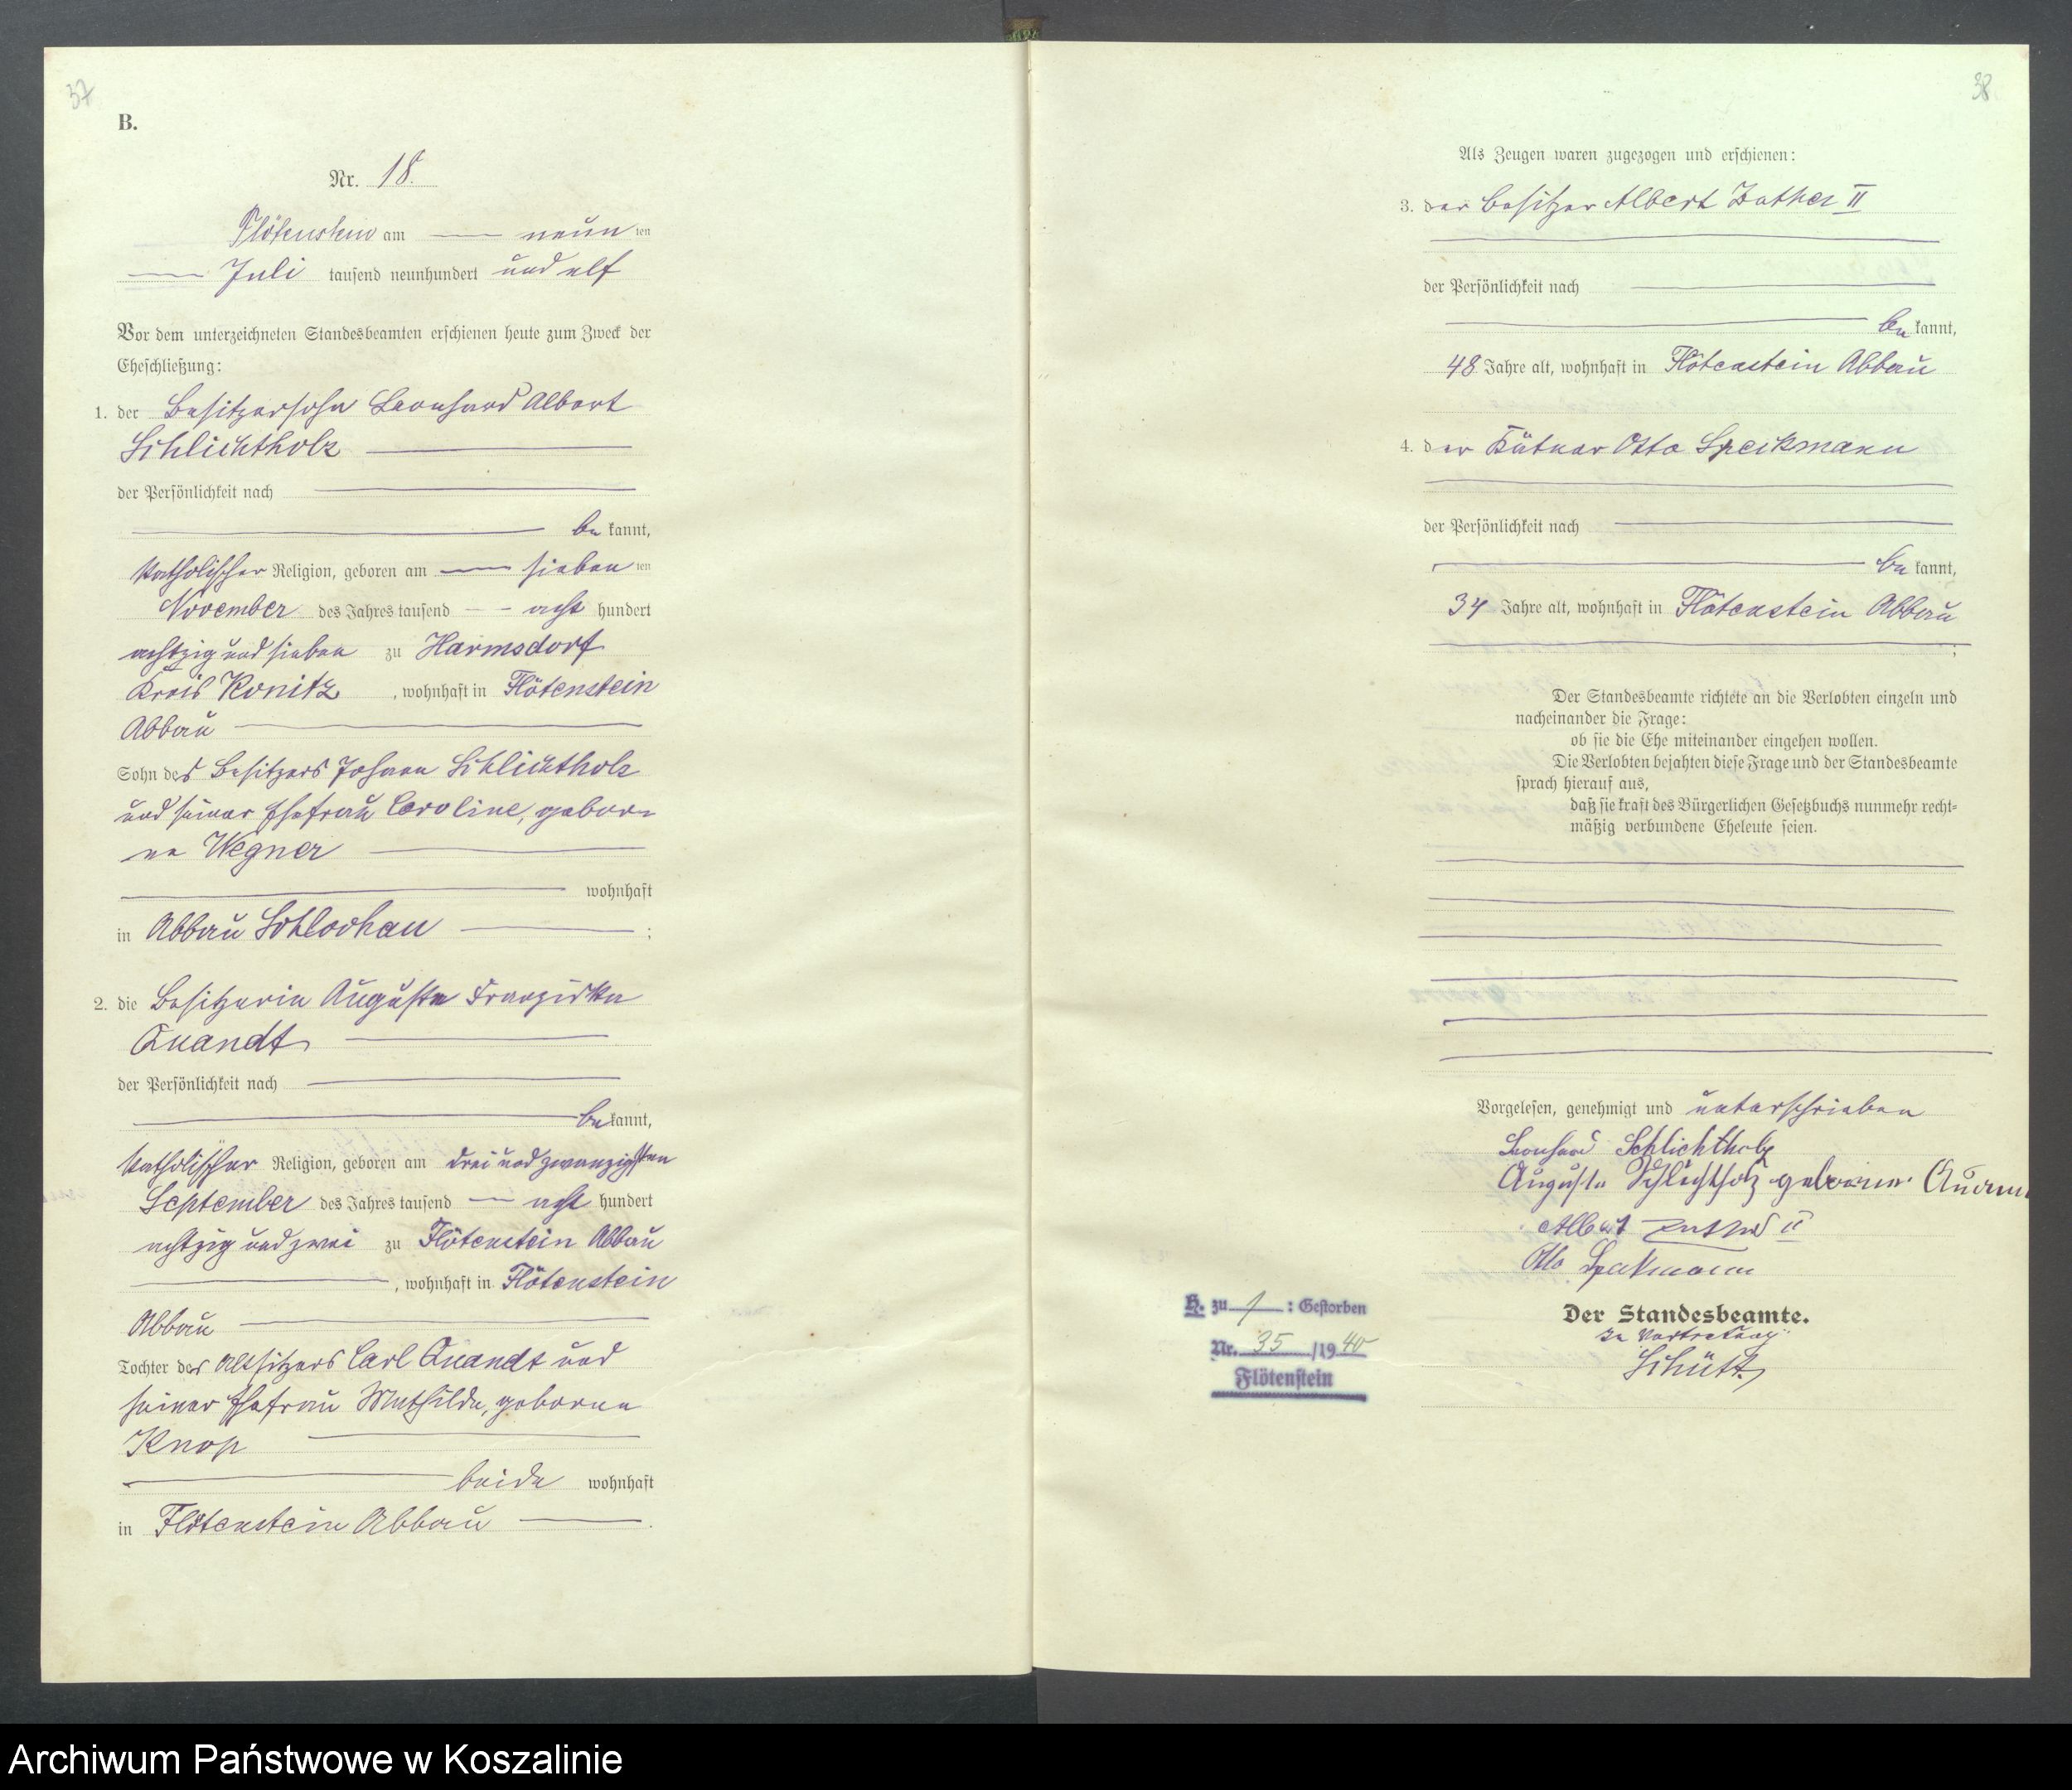 37
B.
Nr. 18.
Flötenstein am neunten
Juli tausend neunhundert und elf
Vor dem unterzeichneten Standesbeamten erschienen heute zum Zweck der
Eheschließung:
1. der Besitzersohn Leonhard Albert
Schlichtholz
der Persönlichkeit nach
bekannt,
katholischer Religion, geboren am siebenten
November des Jahres tausend acht hundert
achtzig und sieben zu Harmsdorf
Kreis Konitz, wohnhaft in Flötenstein
Abbau
Sohn des Besitzers Johann Schlichtholz
und seiner Ehefrau Caroline, gebore-
ne Wegner
wohnhaft
in Abbau Schlochau ;
2. die Besitzerin Auguste Franziska
Quandt
der Persönlichkeit nach
bekannt,
katholischer Religion, geboren am drei und zwanzigsten
September des Jahres tausend acht hundert
achtzig und zwei zu Flötenstein Abbau
, wohnhaft in Flötenstein
Abbau
Tochter des Altsitzers Carl Quandt und
seiner Ehefrau Mathilde, geborene
Knop
beide wohnhaft
in Flötenstein Abbau .
38
Als Zeugen waren zugezogen und erschienen:
3. der Besitzer Albert II
der Persönlichkeit nach
bekannt,
48 Jahre alt, wohnhaft in Flötenstein Abbau
4. der Kätner Otto Speckmann
der Persönlichkeit nach
bekannt,
34 Jahre alt, wohnhaft in Flötenstein Abbau
;
Der Standesbeamte richtete an die Verlobten einzeln und
nacheinander die Frage:
ob sie die Ehe miteinander eingehen wollen.
Die Verlobten bejahten diese Frage und der Standesbeamte
sprach hierauf aus,
daß sie kraft des Bürgerlichen Gesetzbuchs nunmehr recht-
mäßig verbundene Eheleute seien.
Vorgelesen, genehmigt und unterschrieben
Leonhard Schlichtholz
Auguste Schlichtholz geborene Quandt
Albert II
Otto Speckmann
Der Standesbeamte.
In Vertretung
Schütt
H. zu 1 : Gestorben
Nr. 35 /1940
Flötenstein
Archiwum Państwowe w Koszalinie